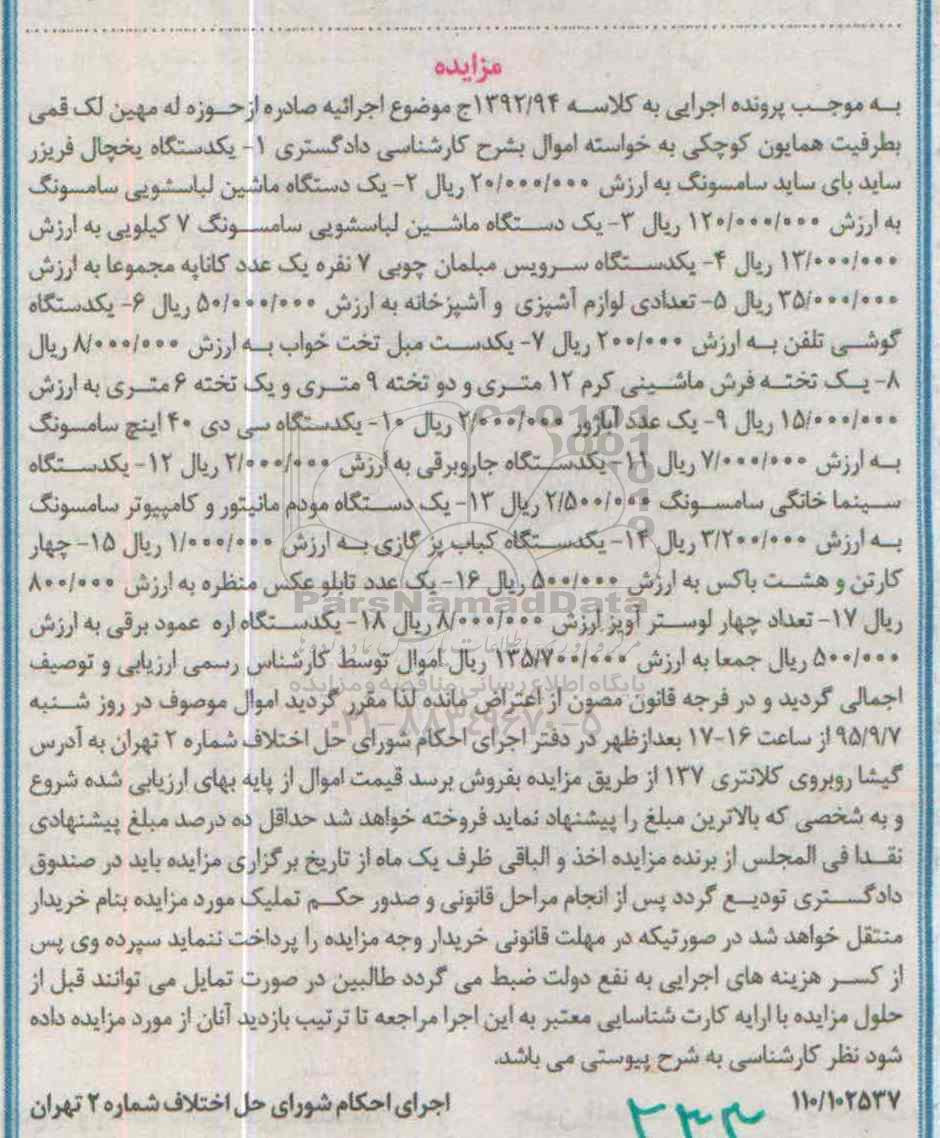 مزایده
به موجب پرونده اجرایی به کلاسه ۱۳۹۲/۹۴ج موضوع اجرائیه صادره از حوزه له مهین لک قمی
بطرفیت همایون کوچکی به خواسته اموال بشرح کارشناسی دادگستری ۱- یکدستگاه یخچال فریزر
ساید بای ساید سامسونگ به ارزش ۲۰/۰۰۰/۰۰۰ ریال ۲- یک دستگاه ماشین لباسشویی سامسونگ
به ارزش ۱۲۰/۰۰۰/۰۰۰ ریال ۳- یک دستگاه ماشین لباسشویی سامسونگ ۷ کیلویی به ارزش
۱۳/۰۰۰/۰۰۰ ریال ۴- یکدستگاه سرویس مبلمان چوبی ۷ نفره یک عدد کاناپه مجموعا به ارزش
۳۵/۰۰۰/۰۰۰ ریال ۵- تعدادی لوازم آشپزی و آشپزخانه به ارزش ۵۰/۰۰۰/۰۰۰ ریال ۶- یکدستگاه
گوشی تلفن به ارزش ۲۰۰/۰۰۰ ریال ۷- یکدست مبل تخت خواب به ارزش ۸/۰۰۰/۰۰۰ ریال
۸- یک تخته فرش ماشینی کرم ۱۲ متری و دو تخته ۹ متری و یک تخته ۶ متری به ارزش
۱۵/۰۰۰/۰۰۰ ریال ۹- یک عدد آباژور ۲/۰۰۰/۰۰۰ ریال ۱۰- یکدستگاه سی دی ۴۰ اینچ سامسونگ
به ارزش ۷/۰۰۰/۰۰۰ ریال ۱۱- یکدستگاه جاروبرقی به ارزش ۲/۰۰۰/۰۰۰ ریال ۱۲- یکدستگاه
سینما خانگی سامسونگ ۲/۵۰۰/۰۰۰ ریال ۱۳- یک دستگاه مودم مانیتور و کامپیوتر سامسونگ
به ارزش ۳/۲۰۰/۰۰۰ ریال ۱۴- یکدستگاه کباب پز گازی به ارزش ۱/۰۰۰/۰۰۰ ریال ۱۵- چهار
کارتن و هشت باکس به ارزش ۵۰۰/۰۰۰ ریال ۱۶- یک عدد تابلو عکس منظره به ارزش ۸۰۰/۰۰۰
ParsNamadData
ریال ۱۷- تعداد چهار لوستر آویز ارزش ۸/۰۰۰/۰۰۰ ریال ۱۸- یکدستگاه اره عمود برقی به ارزش
۵۰۰/۰۰۰ ریال جمعا به ارزش ۱۳۵/۷۰۰/۰۰۰ ریال اموال توسط کارشناس رسمی ارزیابی و توصیف
پایگاه اطلاع رسانی مناقصه و مزایده
اجمالی گردید و در فرجه قانون مصون از اعتراض مانده لذا مقرر گردید اموال موصوف در روز شنبه
۰۲۱-۸۸۳۴۹۶۷۰-۵
۹۵/۹/۷ از ساعت ۱۶-۱۷ بعدازظهر در دفتر اجرای احکام شورای حل اختلاف شماره ۲ تهران به آدرس
گیشا روبروی کلانتری ۱۳۷ از طریق مزایده بفروش برسد قیمت اموال از پایه بهای ارزیابی شده شروع
و به شخصی که بالاترین مبلغ را پیشنهاد نماید فروخته خواهد شد حداقل ده درصد مبلغ پیشنهادی
نقدا فی المجلس از برنده مزایده اخذ و الباقی ظرف یک ماه از تاریخ برگزاری مزایده باید در صندوق
دادگستری تودیع گردد پس از انجام مراحل قانونی و صدور حکم تملیک مورد مزایده بنام خریدار
منتقل خواهد شد در صورتیکه در مهلت قانونی خریدار وجه مزایده را پرداخت ننماید سپرده وی پس
از کسر هزینه های اجرایی به نفع دولت ضبط می گردد طالبین در صورت تمایل می توانند قبل از
حلول مزایده با ارایه کارت شناسایی معتبر به این اجرا مراجعه تا ترتیب بازدید آنان از مورد مزایده داده
شود نظر کارشناسی به شرح پیوستی می باشد.
۱۱۰/۱۰۲۵۳۷ اجرای احکام شورای حل اختلاف شماره ۲ تهران